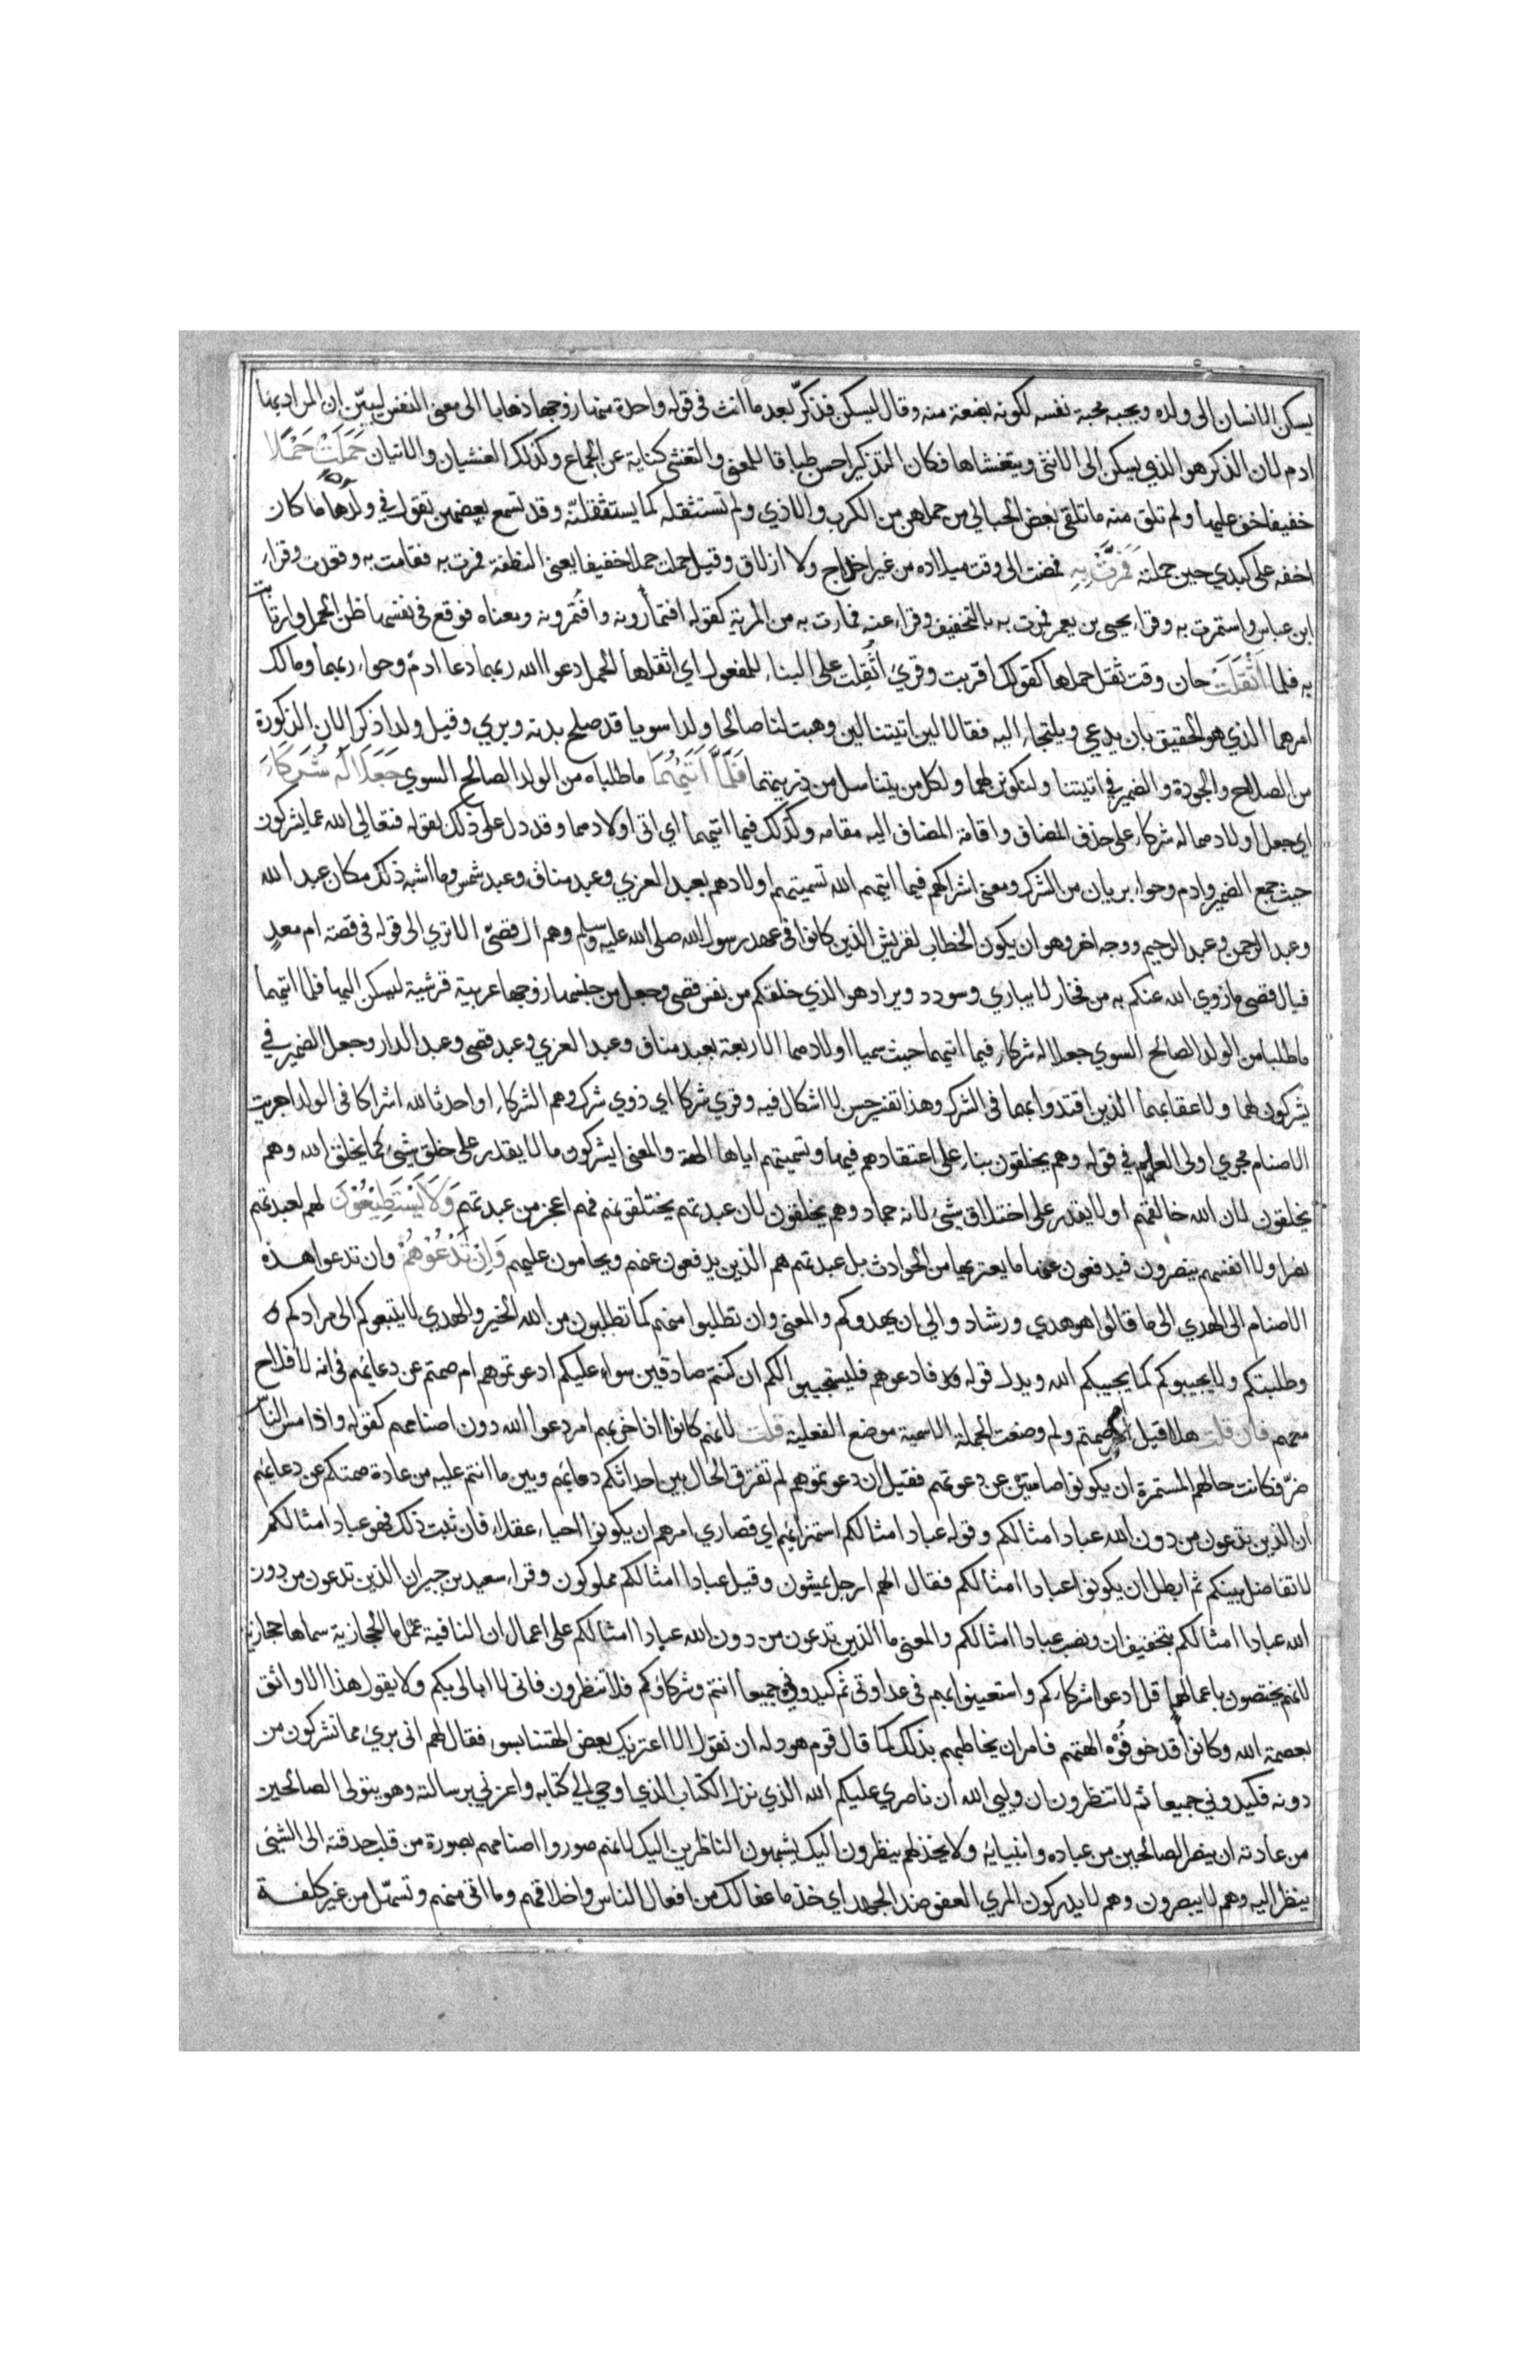 يسكن الانسان الى ولده ويحبه محبة نفسه لكونه بضعة منه وقال ليسكن فذكّر بعد ما انث في قوله واحدة منها زوجها ذهابا الى معنى النفس ليبيّن ان المراد بها
ادم لان الذكر هو الذي يسكن الى الانثى ويتغشاها فكان التذكير احسن طباقا للمعنى والتغشي كناية عن الجماع وكذلك الغشيان والاتيان حَمَلَتْ حَمْلًا
خفيفا خف عليها ولم تلق منه ما تلقى بعض الحبالى من حملهن من الكرب والاذي ولم تستثقله كما يستثقلنه وقد تسمع بعضهن تقول في ولدها ما كان
اخفه على كبدي حين حملته فَمَرَّتْ بِهِ فمضت الى وقت ميلاده من غير اخداج ولا ازلاق وقيل حملت حملا خفيفا يعنى النطفة فمرت به فقامت به وقعدت وقراء
ابن عباس واستمرت به وقراء يحيى بن يعمر فمرت به بالتخفيف وقراء عنه فمارت به من المرية كقوله افتمارونه وافتمرونه ومعناه فوقع في نفسها ظن الحمل وارتابت
به فلما اَثْقَلَتْ حان وقت ثقل حملها كقولك اقربت وقري اُثقلت على البناء للمفعول اي اثقلها الحمل دعوا الله ربهما دعا ادم وحواء ربهما ومالك
امرهما الذي هو الحقيق بان يدعي ويلتجاء اليه فقالا لين اتيتنا لين وهبت لنا صالحا ولدا سويا قد صلح بدنه وبري وقيل ولدا ذكرا لان الذكورة
من الصلاح والجودة والضمير في اتيتنا ولنكونن لهما ولكل من يتناسل من ذريتهما فَلَمَّا اٰتٰيهُمَا ما طلباه من الولد الصالح السوي جَعَلَا لَهُ شُرَكَاءَ
اي جعل اولادهما له شركاء على حذف المضاف واقامة المضاف اليه مقامه وكذلك فيما اتيهما اي اتى اولادهما وقد دل على ذلك بقوله فتعالى الله عما يشركون
حيث جمع الضمير وادم وحواء بريان من الشرك ومعنى اشراكهم فيما اتيهم الله تسميتهم اولادهم بعبد العزي وعبد مناف وعبد شمس وما اشبه ذلك مكان عبد الله
وعبد الرحمن وعبد الرحيم ووجه اخر وهو ان يكون الخطاب لقريش الذين كانوا في عهد رسول الله صلى الله عليه وسلم وهم ال قصيّ الا تري الى قوله في قصة ام معبد
فيال قصى ما زوي الله عنكم به من فخار لا يباري وسودد ويراد هو الذي خلقكم من نفس قصي وجعل من جنسها زوجها عربية قرشية ليسكن اليها فلما اتيهما
ما طلبا من الولد الصالح السوي جعلا له شركاء فيما اتيهما حيث سميا اولادهما الاربعة بعبد مناف وعبد العزي وعبد قصي وعبد الدار وجعل الضمير في
يشركون لهما ولاعقابهما الذين اقتدوا بهما في الشرك وهذا تفسير حسن لا اشكال فيه وقري شركا اي ذوي شرك وهم الشركاء او احدثا لله اشراكا في الولد اجريت
الاصنام مجري اولى العلم في قوله وهم يخلقون بناء على اعتقادهم فيها وتسميتهم اياها الهة والمعنى ايشركون ما لا يقدر على خلق شيء كما يخلق الله وهم
يخلقون لان الله خالقهم او لا يقدر على اختلاق شيء لانه جماد وهم يخلقون لان عبدتهم يختلقونهم فهم اعجز من عبدتهم وَلَا يَسْتَطِيْعُوْنَ لهم لعبدتهم
نصرا ولا انفسهم ينصرون فيدفعون عنها ما يعتريها من الحوادث بل عبدتهم هم الذين يدفعون عنهم ويحامون عليهم وَاِنْ تَدْعُوْهُمْ وان تدعوا هذه
الاصنام الى الهدي الى ما قالوا هو هدي ورشاد والى ان يهدوكم والمعنى وان تطلبوا منهم كما تطلبون من الله الخير والهدي لا يتبعوكم الى مرادكم
وطلبتكم ولا يجيبوكم كما يجيبكم الله ويدل قوله فادعوهم فليستجيبوا لكم ان كنتم صادقين سواء عليكم ادعوتموهم ام صمتم عن دعايهم في انه لا فلاح
معهم فان قلت هلا قيل ام صمتم ولم وضعت الجملة الاسمية موضع الفعلية قلت لانهم كانوا اذا حزبهم امر دعوا الله دون اصنامهم كقوله واذا مس الناس
ضرّ فكانت حالهم المستمرة ان يكونوا صامتين عن دعوتهم فقيل ان دعوتموهم لم تفترق الحال بين احداثكم دعايهم وبين ما انتم عليه من عادة صمتكم عن دعايهم
ان الذين تدعون من دون الله عباد امثالكم وقوله عباد امثالكم استهزاء بهم اي قصاري امرهم ان يكونوا احياء عقلاء فان ثبت ذلك فهم عباد امثالكم
لا تفاضل بينكم ثم ابطل ان يكونوا عبادا امثالكم فقال الهم ارجل يمشون وقيل عباد امثالكم مملوكون وقراء سعيد بن جبير ان الذين تدعون من دون
الله عبادا امثالكم بتخفيف ان ونصب عبادا امثالكم والمعنى ما الذين تدعون من دون الله عبادا امثالكم على اعمال ان النافية عمل ما الحجازية سماها حجازية
لانهم يختصون باعمالها قل ادعوا شركاءكم واستعينوا بهم في عداوتي ثم كيدوني جميعا انتم وشركاؤكم فلا تنظرون فاني لا ابالي بكم ولا يقول هذا الا واثق
بعصمة الله وكانوا قد خوفوه الهتهم فامر ان يخاطبهم بذلك كما قال قوم هود له ان نقول الا اعتريك بعض الهتنا بسوء فقال لهم اني بريء مما تشركون من
دونه فكيدوني جميعا ثم لا تنظرون ان وليي الله ان ناصري عليكم الله الذي نزل الكتاب الذي اوحي الي كتابه واعزني برسالته وهو يتولى الصالحين
من عادته ان ينصر الصالحين من عباده وانبيايه ولا يخذلهم ينظرون اليك يشبهون الناظرين اليك لانهم صوروا اصنامهم بصورة من قلب حدقته الى الشيئ
ينظر اليه وهم لا يبصرون وهم لا يدركون المري العفو ضد الجهد اي خذ ما عفا لك من افعال الناس واخلاقهم وما اتى منهم وتسهل من غير كلفة